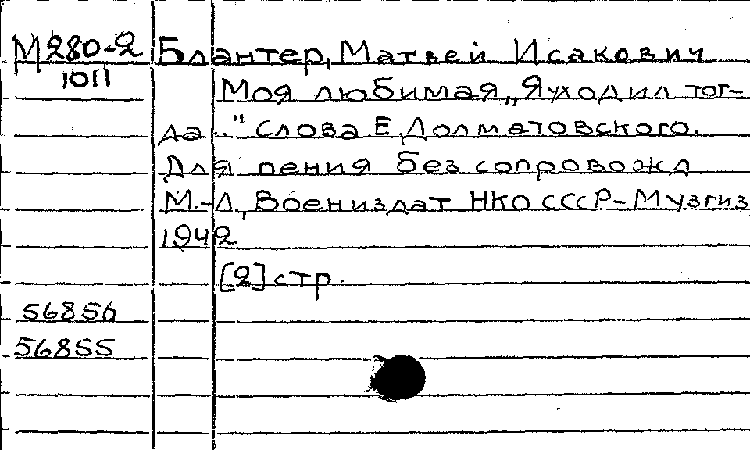 М280-2 Блантер, Матвей Исакович
1011
Моя любимая „Я уходил тог-
да.." Слова Е. Долматовского.
Для пения без сопровожд
М.-Л., Воениздат НКО СССР-Музгиз
1942
[2] стр.
56856
56855